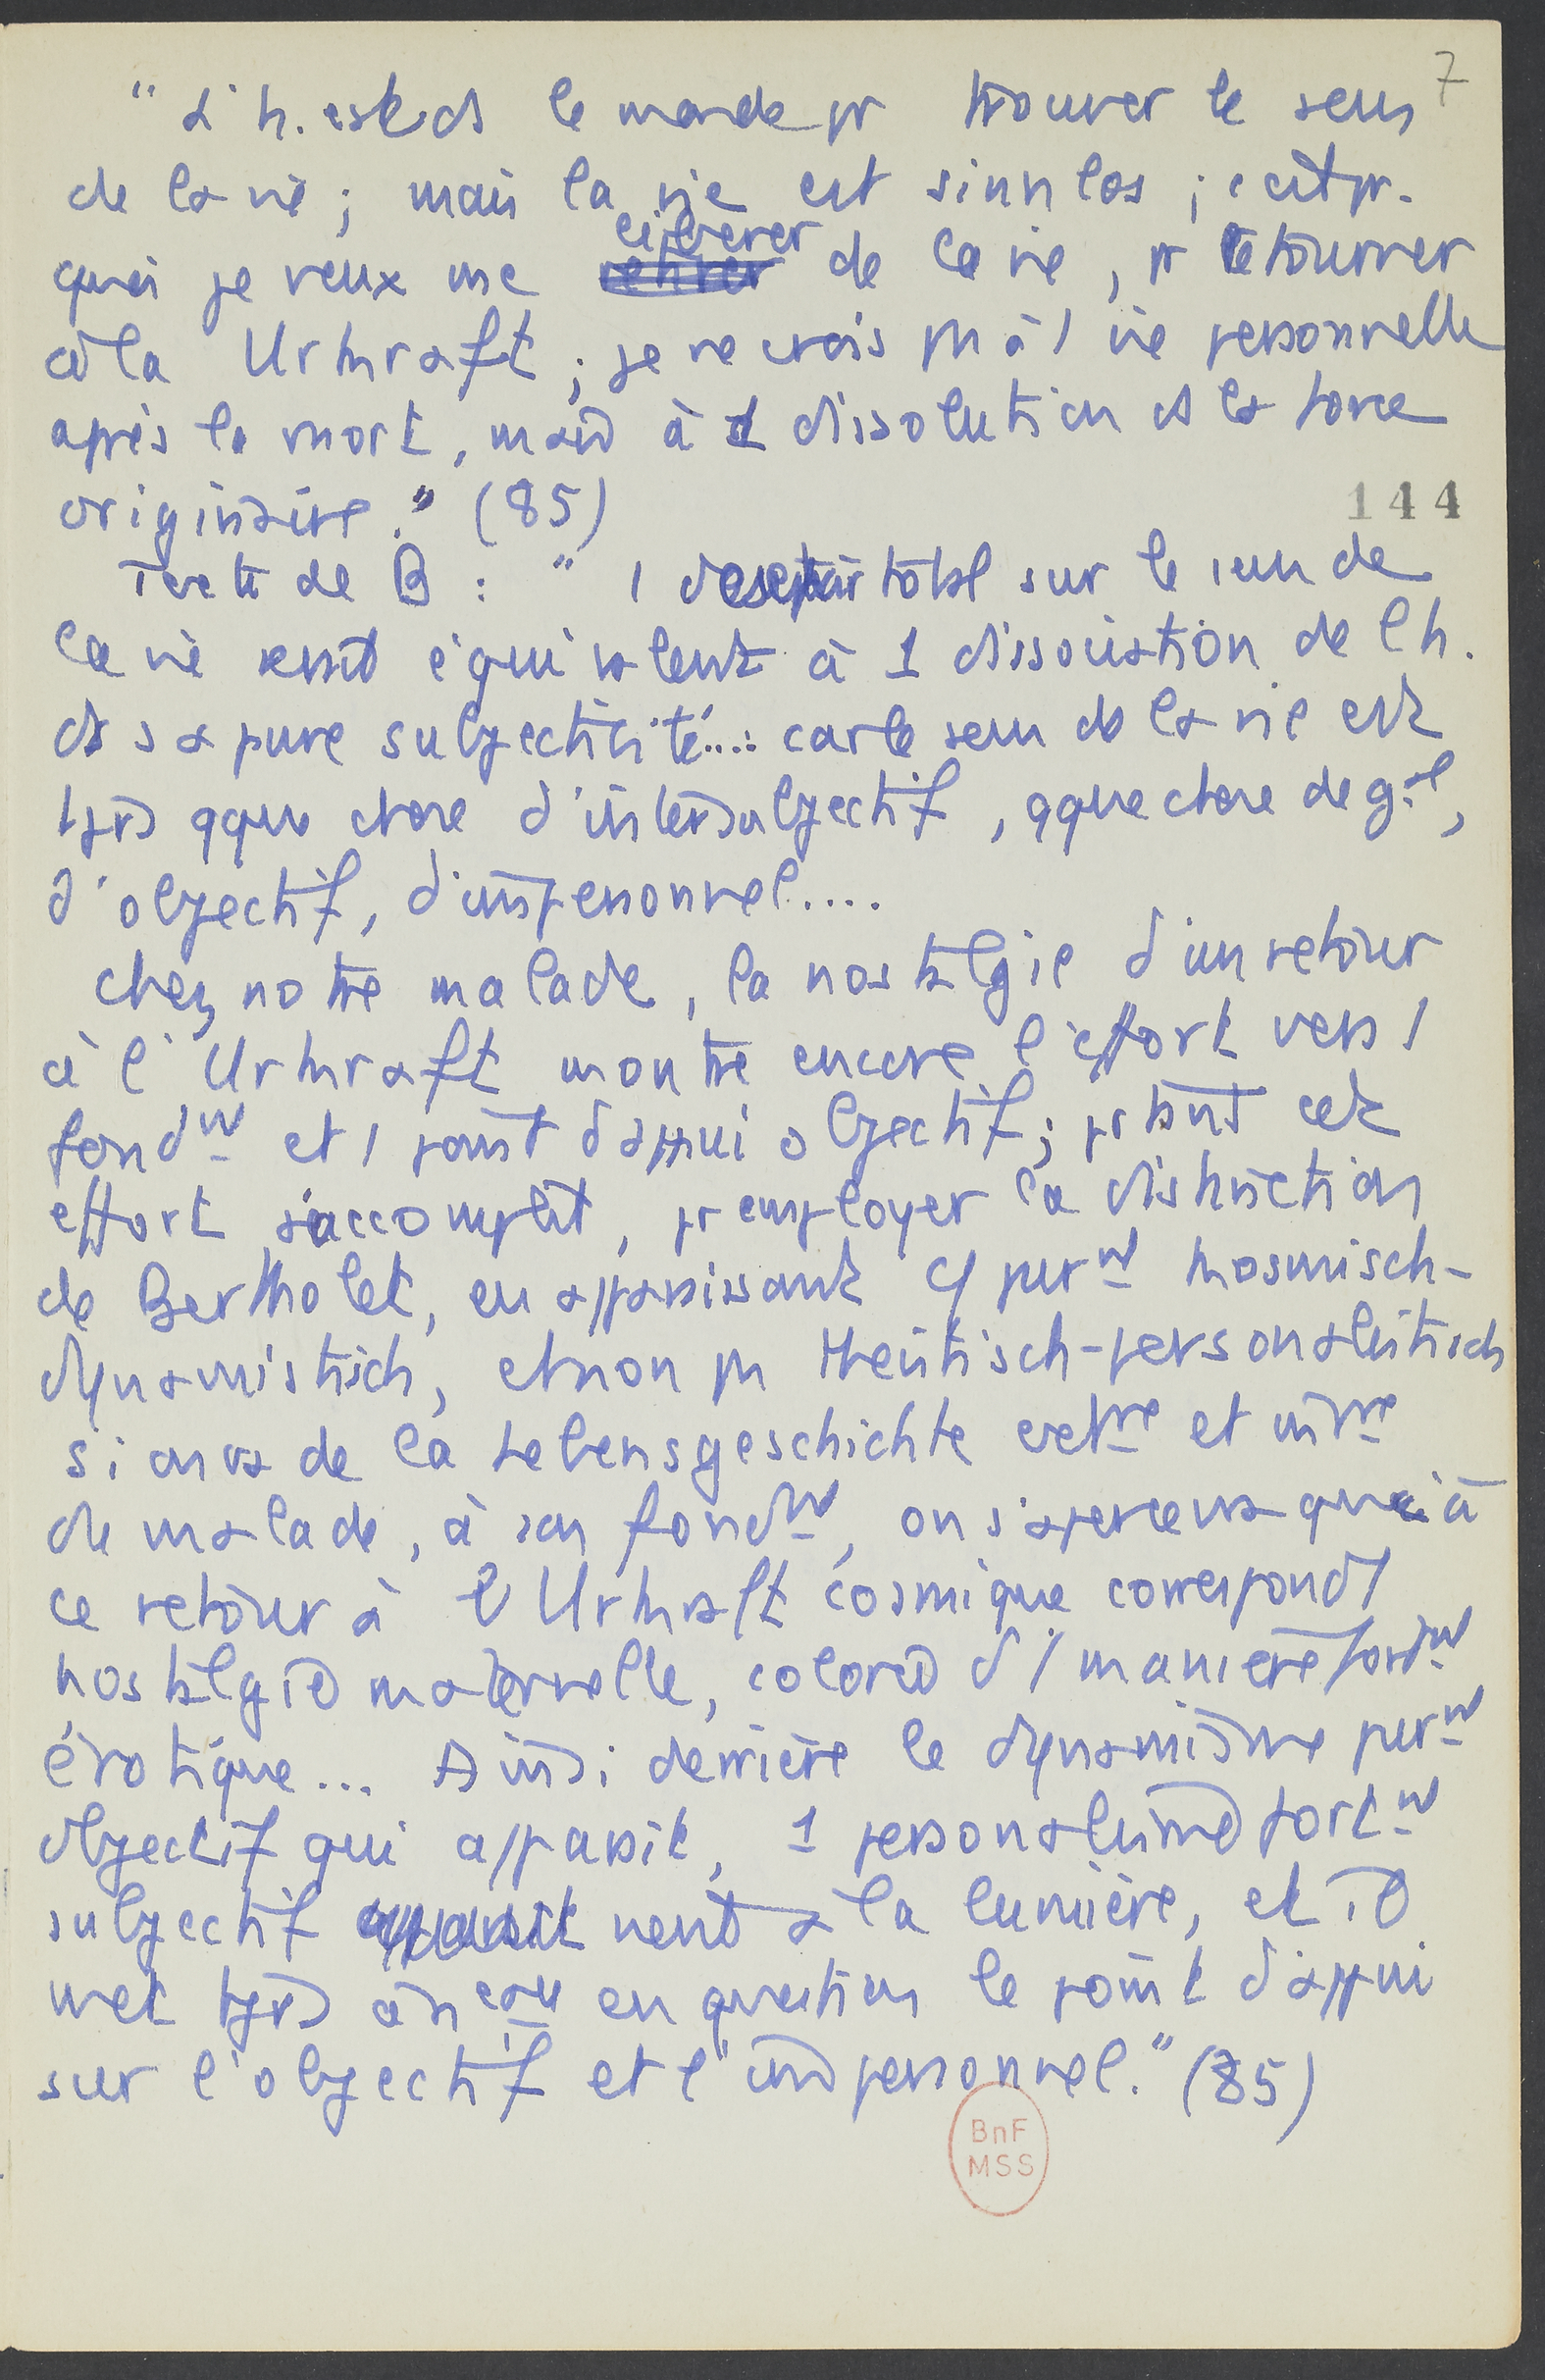 7
"L'h. est ds le monde pr trouver le sens
de la vie ; mais la vie est sinnlos ; c'est pr-
quoi je veux me libérer de la vie, pr retourner
à la Urkraft ; je ne crois pas à 1 vie personnelle
après la mort, mais à 1 dissolution ds la force
originaire." (85)
144
Texte de B : " 1 désespoir total sur le sens de
la vie serait équivalent à 1 dissociation de l'h.
ds sa pure subjectivité.... car le sens de la vie est
tjrs qque chose d'intersubjectif, qque chose de gal,
d'objectif, d'impersonnel....
Chez notre malade, la nostalgie d'un retour
à l'Urkraft montre encore l'effort vers 1
fondnt et 1 point d'appui objectif ; pr tant cet
effort s'accomplit, pr employer la distinction
de Bertholet, en apparaissant c/ purnt kosmisch-
dynamistisch, et non pas theistisch-personalistisch
si on va de la Lebensgeschichte extre et intre
du malade, à son fondnt, on s'apercevra que à
ce retour à l'Urkraft cosmique correspond 1
nostalgie maternelle, colorée d'1 manière fortnt
érotique... Ainsi derrière le dynamisme purnt
objectif qui apparaît, 1 personalisme fortnt
subjectif vient à la lumière, et il
met tjrs à en question le point d'appui
sur l'objectif et l'impersonnel." (85)
BnF
MSS